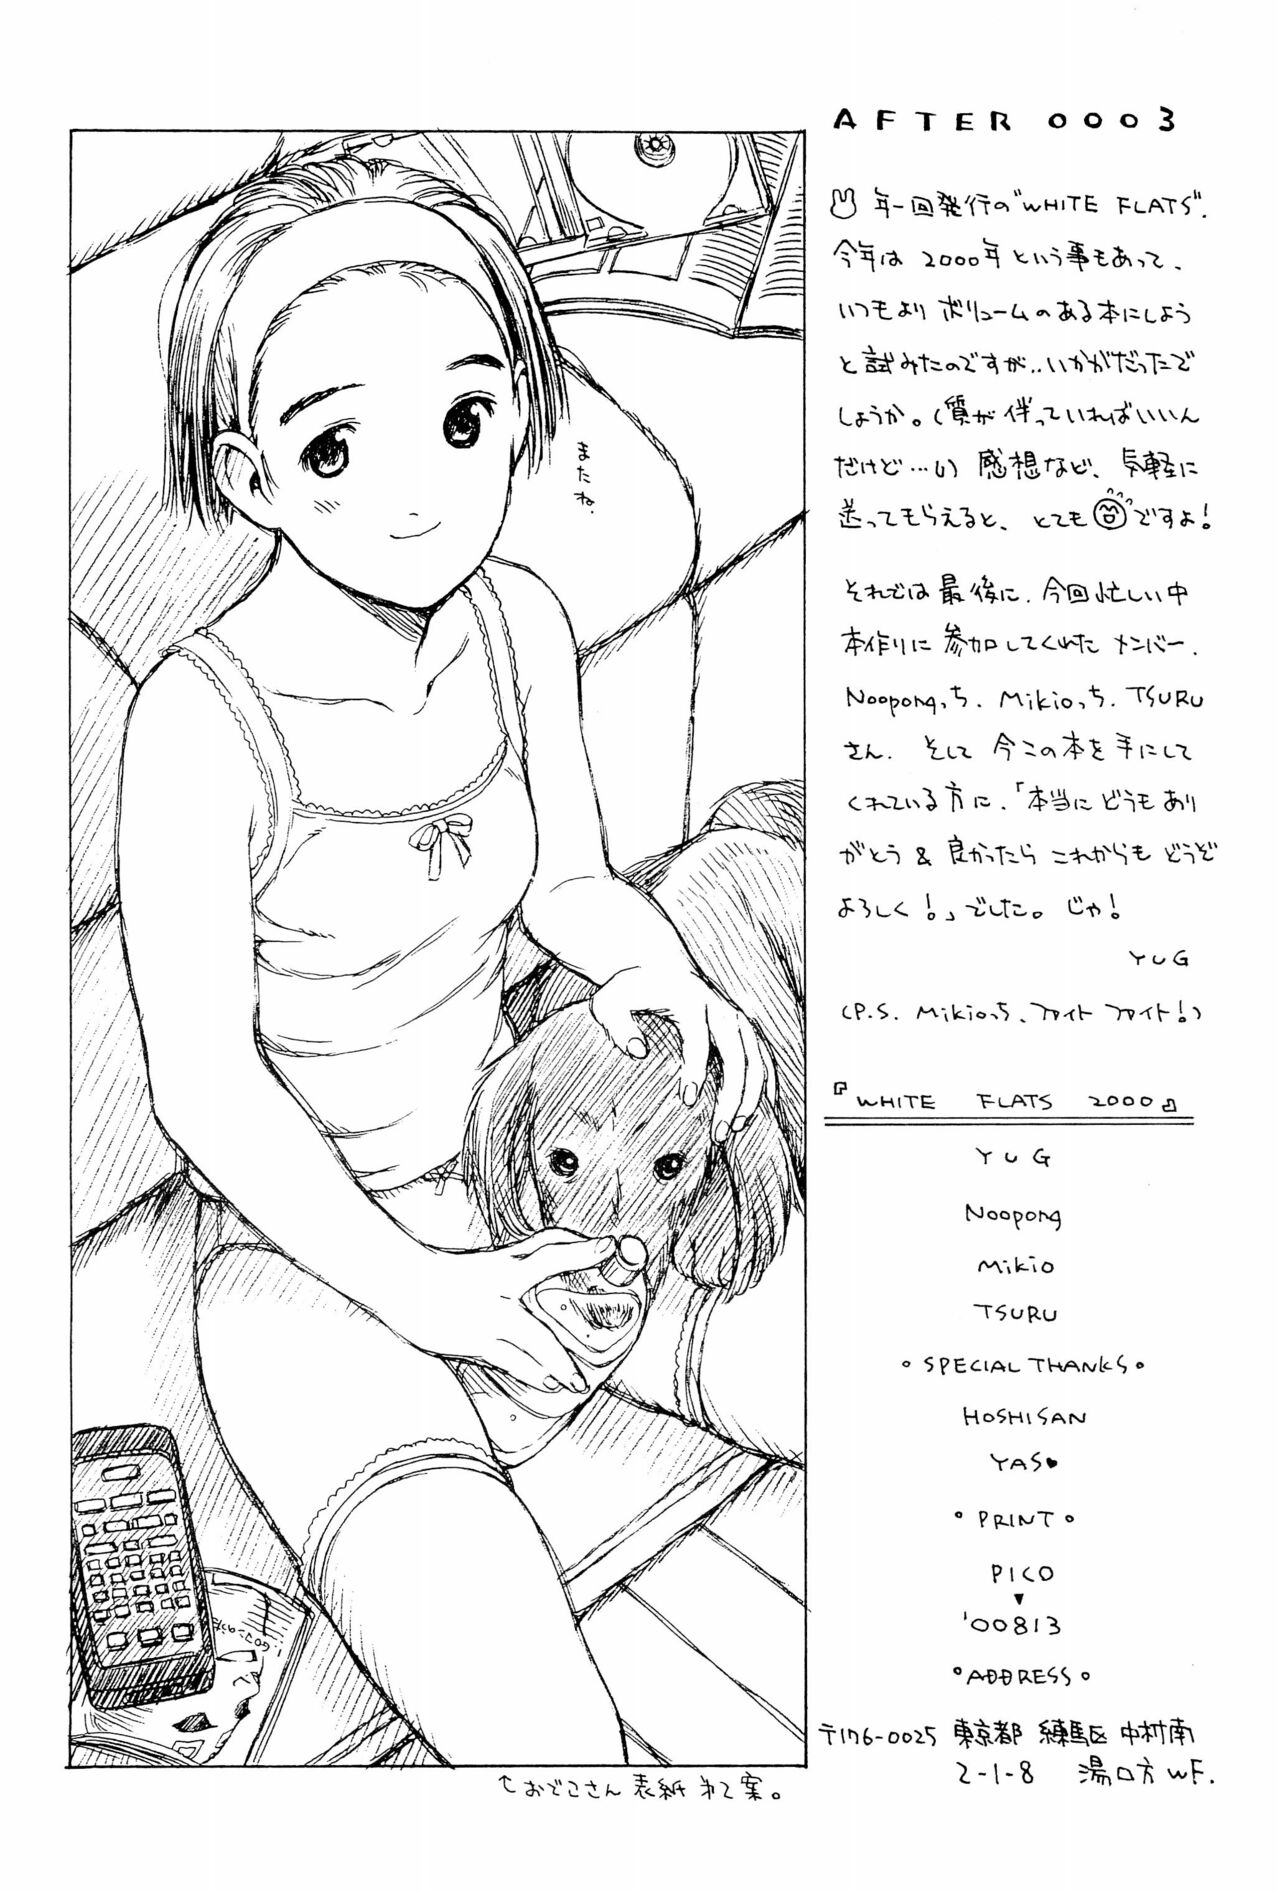 AFTER 0003
年一回発行の"WHITE FLATS".
今年は 2000年 という事もあって、
いつもより ボリュームのある本にしよう
と試みたのですが‥いかがだったで
しょうか。(質が伴っていればいいん
だけど…い) 感想など、気軽に
送ってもらえると、とても ですよ!
それでは最後に、今回忙しい中
本作りに参加してくれた メンバー、
Noopongっち、Mikioっち、TSURU
さん、そして 今この本を手にして
くれている方に、「本当に どうもあり
がとう & 良かったら これからも どうぞ
よろしく!」でした。じゃ!
YUG
(P.S. Mikioっち、ファイト ファイト!)
『WHITE FLATS 2000』
YUG
Noopong
Mikio
TSURU
。SPECIAL THANKS。
HOSHISAN
YAS♥
。PRINT。
PICO
▼
'00813
。ADDRESS。
〒176-0025 東京都 練馬区 中村南
2-1-8 湯口方 WF.
またね。
↑おでこさん 表紙 第2案。